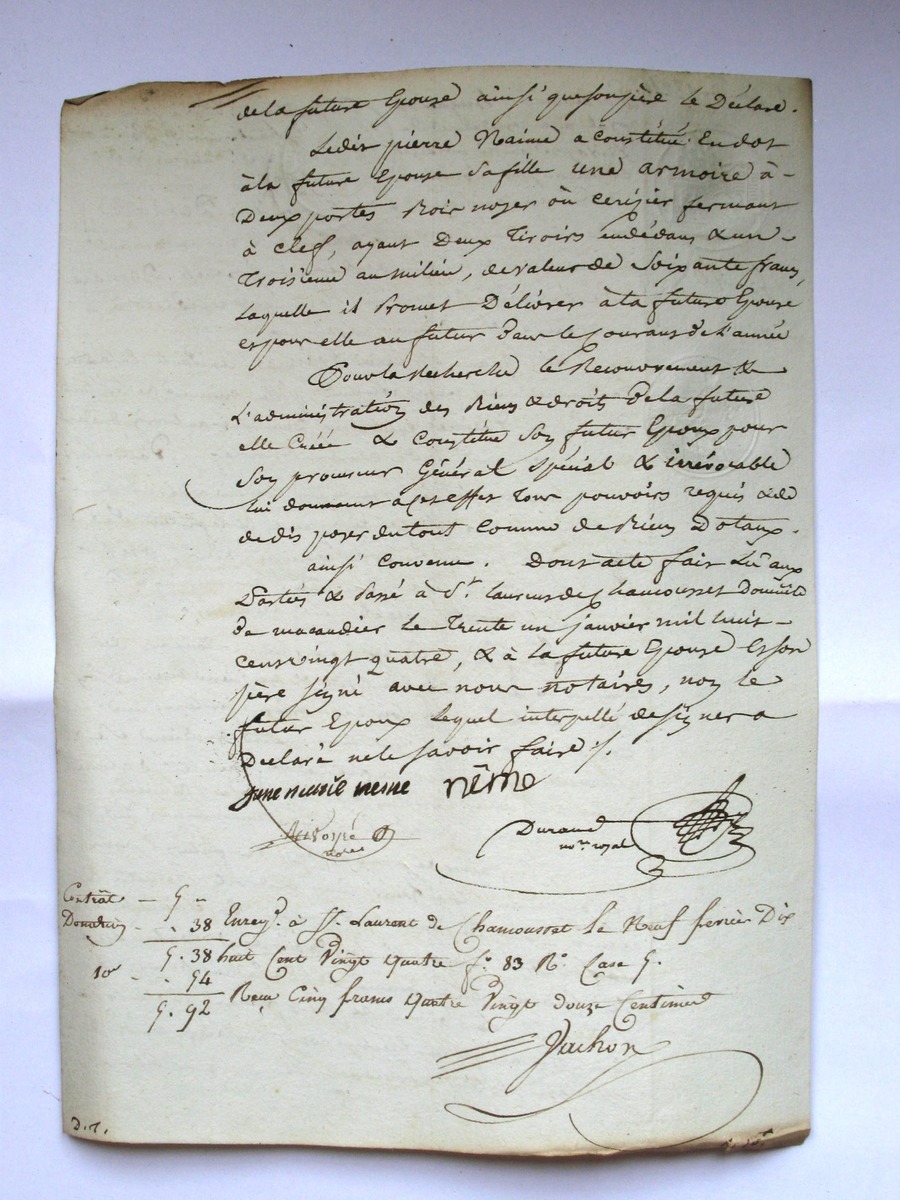 de la future Epouze ainsi que son père le Déclare.
Ledit pierre Naime a constitué En dot
à la future Epouse Sa fille une armoire à -
Deux portes Bois noyer ou cerizier fermant
à clef, ayant Deux Tiroirs en dédans & un -
Troisieme au milieu, de valeur de Soixante francs,
Laquelle il Promet Délivrer à la future Epouse
et pour elle au futur dans le Courant de l'année
Pour la Recherche le Recouvrement &
L'administration des Biens & droits de la future
elle Créée & Constitue Son futur Epoux pour
Son procureur Général spécial & irrévocable
lui donnant à cet effet Tous pouvoirs requis & de
de dis poser du tout Comme de Biens Dotaux.
ainsi Convenu. Dont acte fait Lû aux
Parties & Passé à St. Laurent de Chamousset Domicile
de macaudier le Trente un janvier mil huit -
cent vingt quatre, & à la future Epouse Et son
père signé avec nous notaires, non le
futur Epoux Lequel interpellé de signer a
Déclaré ne le savoir faire ./.
jane marie neme nême
notre
Durand
nore. royal
Contrat - 5 "
Donation . 38 Enregé. à St. Laurent de Chamousset le Neuf fevrier Dix
5. 38 huit Cent Vingt quatre fo. 83 Ro. Case 5.
10e . 54
5. 92 Reçu Cinq francs quatre Vingt douze Centimes
Jachon
D.T.